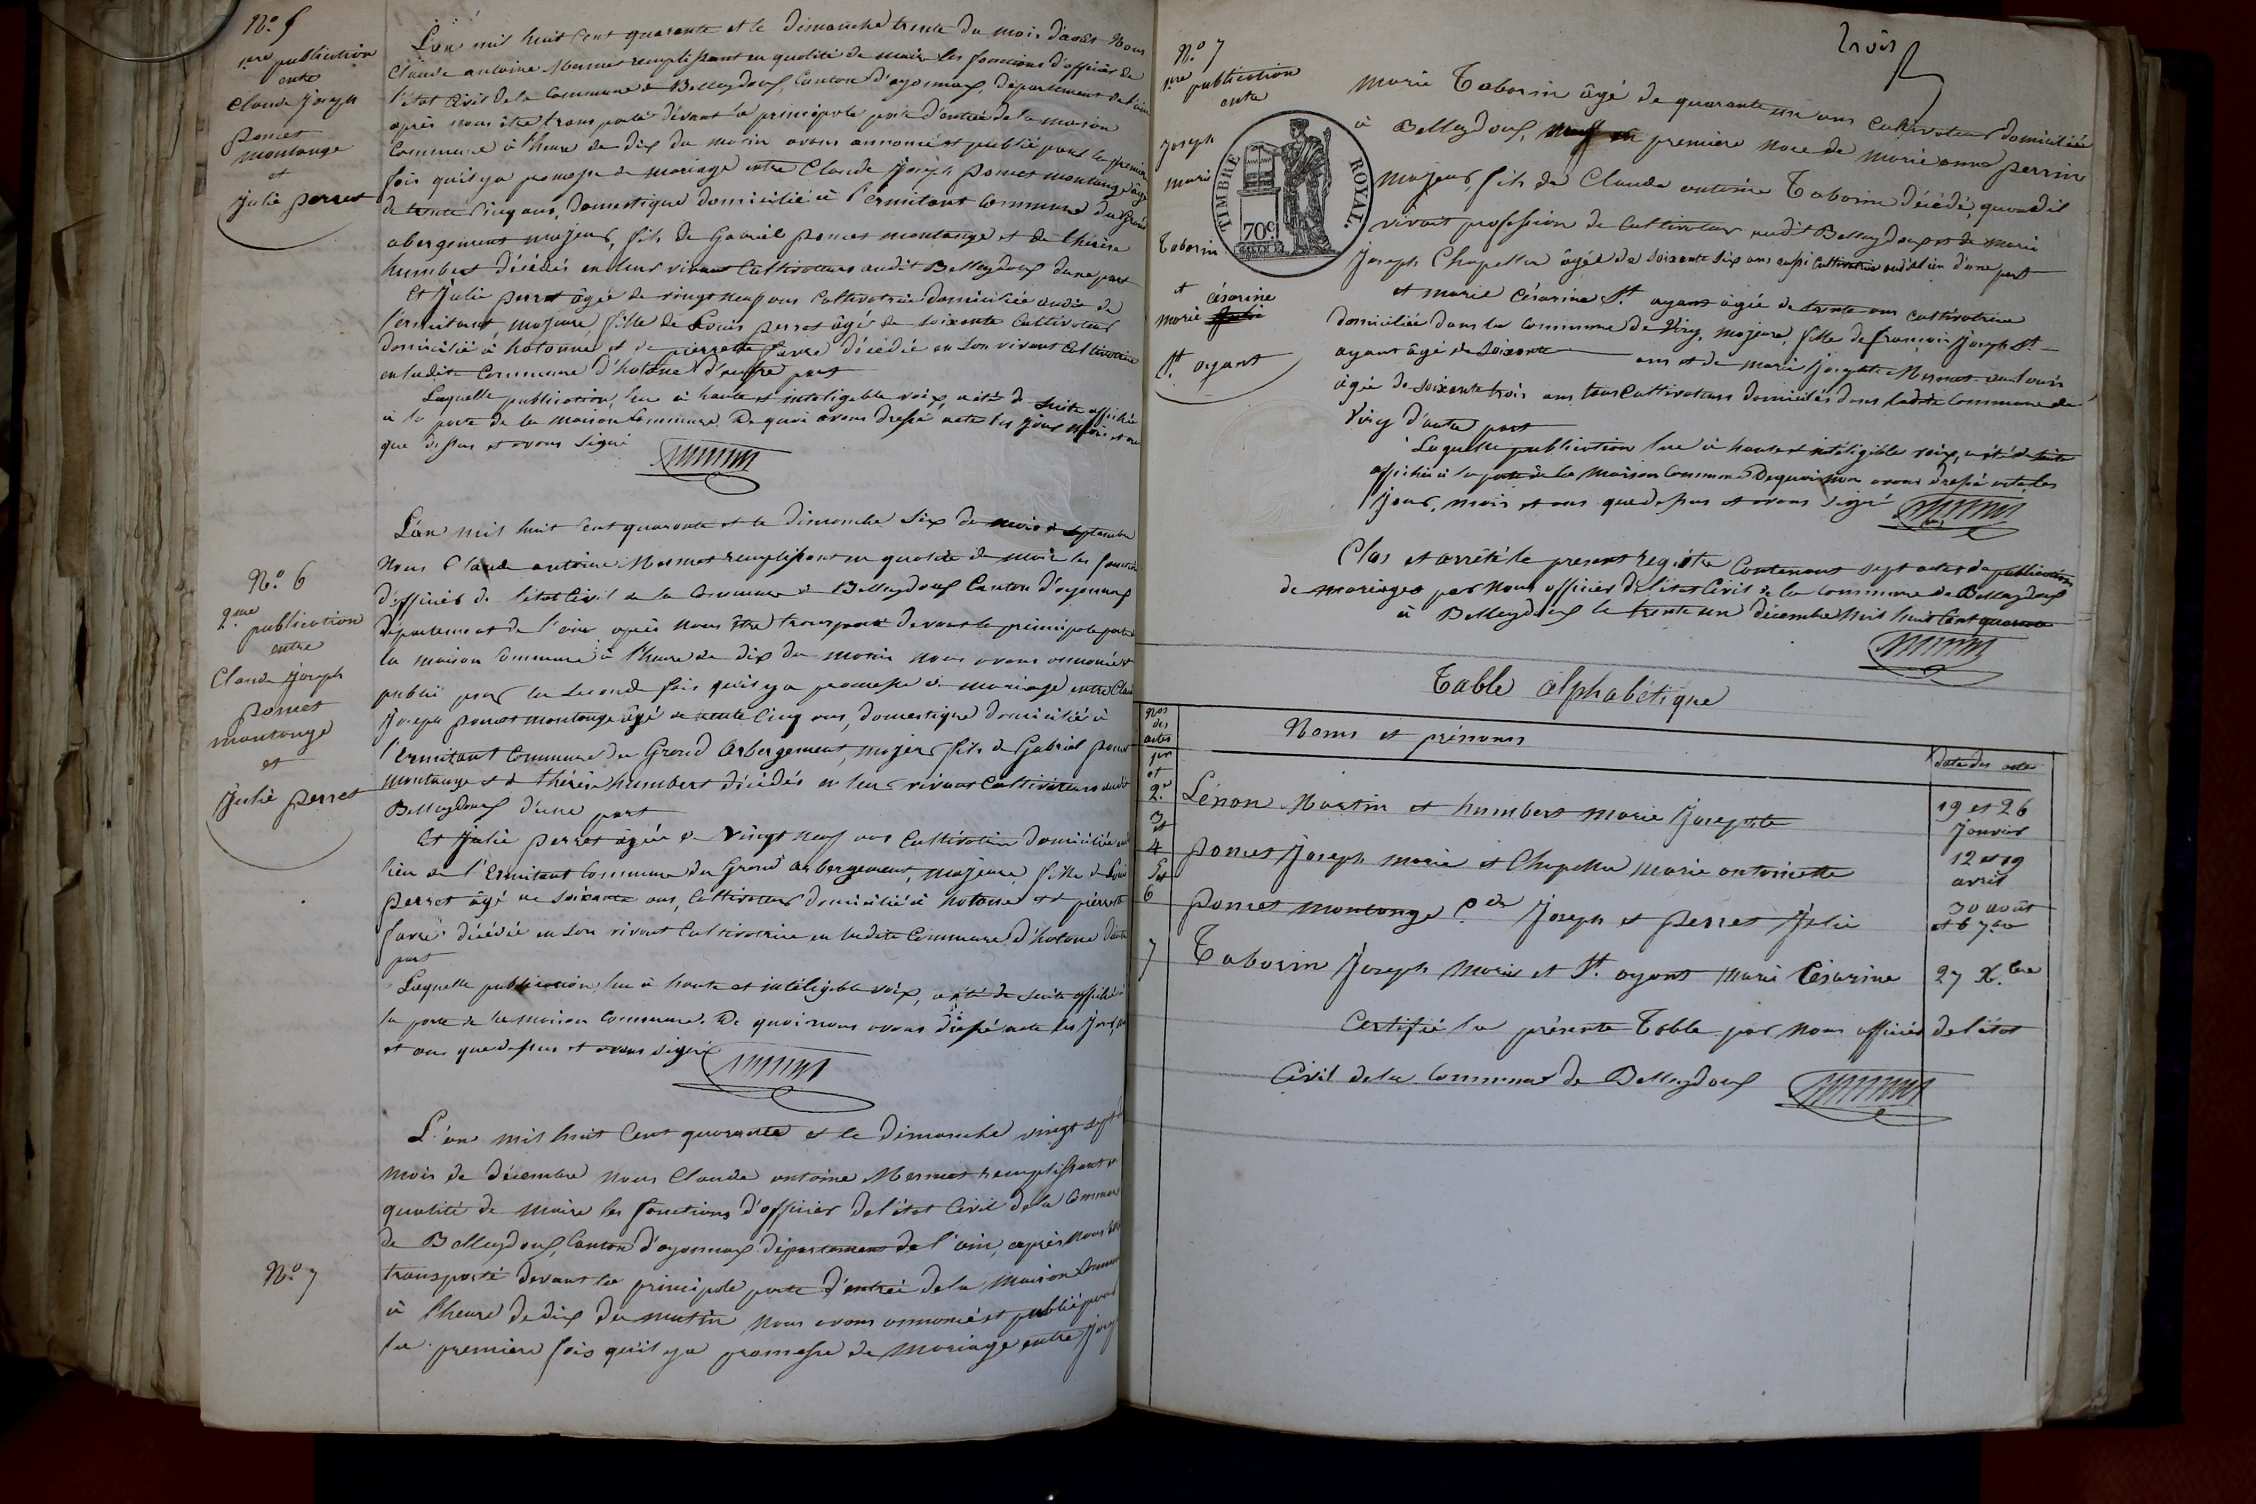 N.o 5
1.ere publication
entre
Claude Joseph
poncet
montange
et
Julie perret
L'an mil huit cent quarante et le dimanche trente du mois d'août Nous
Claude antoine Mermet remplissant en qualité de maire les fonctions d'officier de
l'état Civil de la Commune de Belleydoux, Canton d'oyonnax, département de l'ain
après nous être transporté devant la principale porte d'entrée de la maison
Commune à l'heure de dix du matin avons annoncé et publié pour la première
fois qu'il y a promesse de mariage entre Claude Joseph poncet montange âgé
de trente cinq ans, domestique domicilié à l'Ermitant Commune du Grand
abergement majeur, fils de Gabriel poncet montange et de thérèse
humbert décédés en leur vivant Cultivateurs audit Belleydoux d'une part
Et Julie perret âgée de vingt neuf ans Cultivatrice domiciliée audit de
l'ermitant, majeure, fille de Louis perret âgé de soixante Cultivateur
domicilié à hotonne et de pierrette favre décédée en son vivant Cultivatrice
en ladite Commune d'hotone d'autre part
Laquelle publication, lue à haute et inteligible voix, a été de suite affichée
à la porte de la maison Commune. De quoi avons dressé acte les jour mois et an
que dessus et avons signé
N.o 6
2.me publication
entre
Claude Joseph
poncet
montange
et
Julie perret
L'an mil huit Cent quarante et le dimanche six du mois de septembre
Nous Claude antoine Mermet remplissant en qualité de maire les fonctions
d'officier de l'état Civil de la Commune de Belleydoux Canton d'oyonnax
département de l'ain après nous être transporté devant la principale porte de
la maison Commune à l'heure de dix du matin nous avons annoncé et
publié pour la seconde fois qu'il y a promesse de mariage entre Claude
Joseph poncet montange âgé de trente cinq ans, domestique domicilié à
l'Ermitant Commune du Grand Arbergement, majeur, fils de Gabriel poncet
montange et de thérèse humbert décédés en leur vivant Cultivateurs audit
Belleydoux d'une part
Et Julie perret âgée de vingt neuf ans Cultivatrice domiciliée au
lieu de l'Ermitant Commune du Grand Arbergement, majeure, fille de Louis
perret âgé de soixante ans, Cultivateur domicilié à hotone et de pierrette
favre décédée en son vivant Cultivatrice en ladite Commune d'hotone d'autre
part
Laquelle publication, lue à haute et inteligible voix, a été de suite affichée à
la porte de la maison Commune. De quoi nous avons dressé acte les Jour, mois
et ans que dessus et avons signé
N.o 7
L'an mil huit Cent quarante et le dimanche vingt sept du
mois de décembre nous Claude antoine Mermet remplissant en
qualité de maire les fonctions d'officier de l'état Civil de la Commune
de Belleydoux, Canton d'oyonnax département de l'ain, après nous être
transporté devant la principale porte d'entrée de la maison Commune
à l'heure de dix du matin nous avons annoncé et publié pour
la première fois qu'il y a promesse de mariage entre Joseph
trois
N.o 7
1.ere publication
entre
Joseph
marie
Taborin
et
césarine
marie
St. oyant
TIMBRE ROYAL.
70c
marie Taborin âgé de quarante un ans Cultivateur domicilié
à Belleydoux, première noce de marie anne perrin
majeur, fils de Claude antoine Taborin décédé, quand il
vivait profession de cultivateur audit Belleydoux et de marie
Joseph Chapellu âgée de soixante six ans aussi Cultivatrice audit lieu d'une part
et marie Césarine St. oyant âgée de trente ans cultivatrice
domiciliée dans la commune de Viry, majeure, fille de françois Joseph St.
oyant âgé de soixante ans et de marie Josephte Mermet
âgée de soixante trois ans tous Cultivateurs domiciliés dans ladite Commune de
Viry d'autre part
Laquelle publication lue à haute et inteligible voix, a été de suite
affichée à la porte de la Maison Commune De quoi nous avons dressé acte les
Jour, mois et ans que dessus et avons signé
Clos et arrêté le present registre Contenant sept actes de publications
de mariages par nous officier de l'état Civil de la Commune de Belleydoux
à Belleydoux le trente un décembre mil huit Cent quarante
Table alphabétique
Nos des actes
Noms et prénoms
date des actes
1er et 2.e Lénon Martin et humbert marie Josephte 19 et 26 Janvier
3 et 4 poncet Joseph marie et Chapellu marie antoinette 12 et 19 avril
5 et 6 poncet montange C.de Joseph et perret Julie 30 août et 6 7.bre
7 Taborin Joseph marie et St. oyant marie Césarine 27 X.bre
Certifié la présente Table par nous officier de l'état
Civil de la Commune de Belleydoux